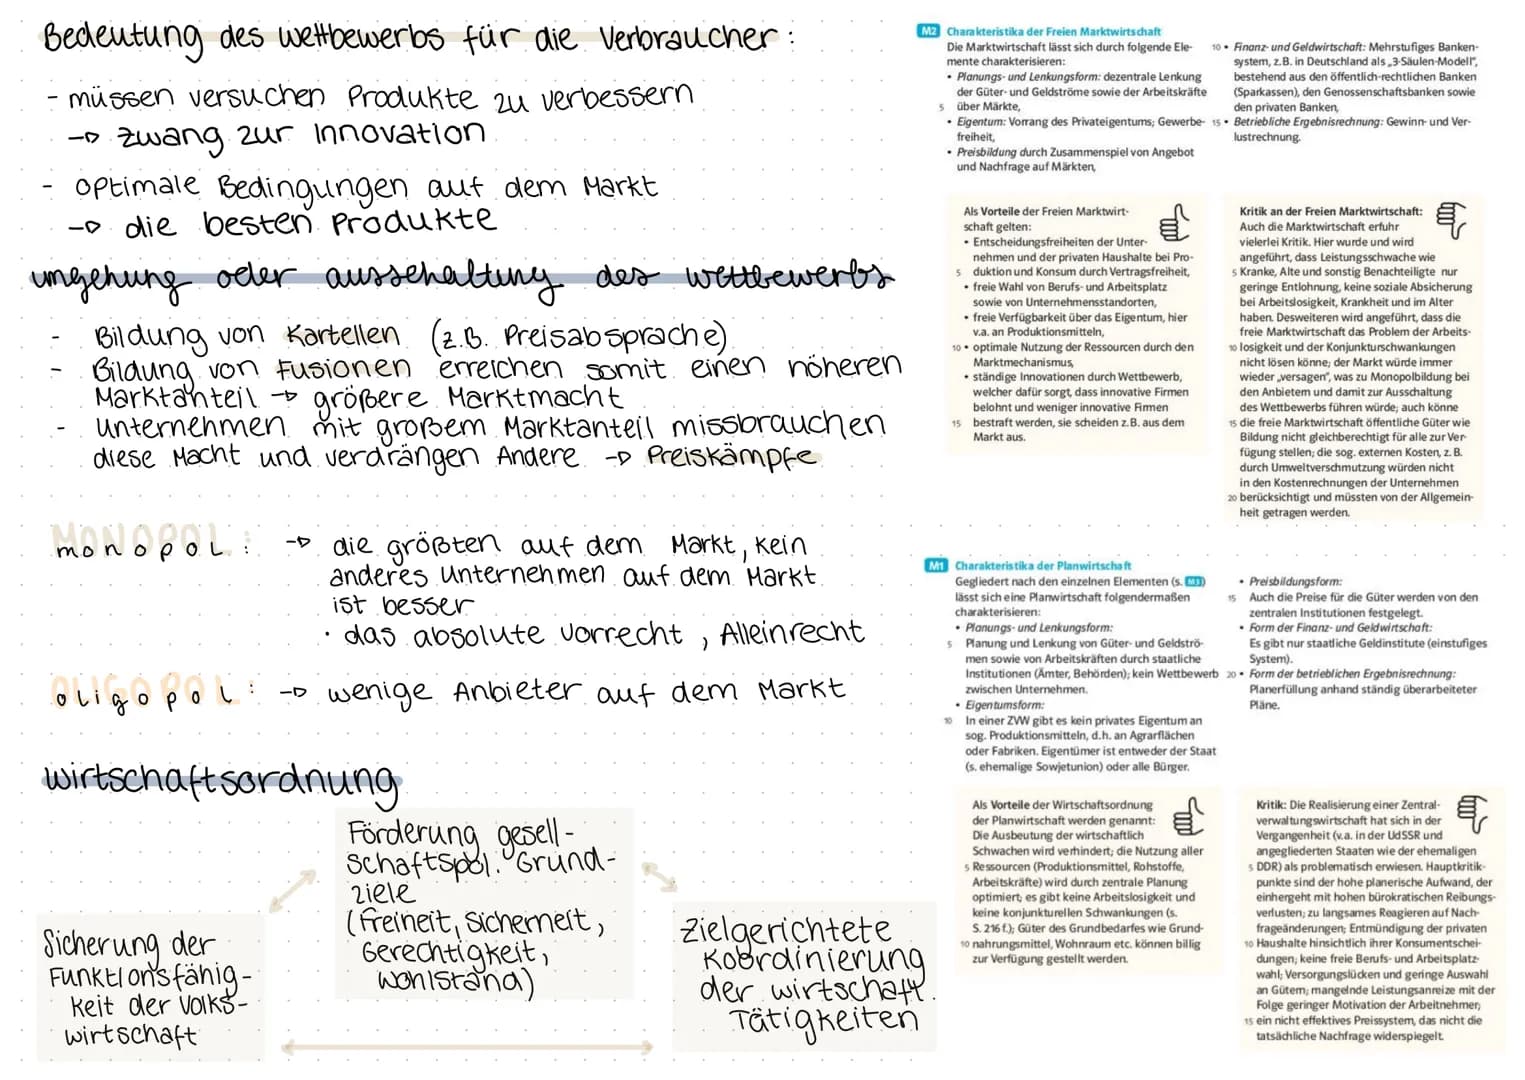 Bedeutung des Wettbewerbs für die Verbraucher:
- müssen versuchen Produkte zu verbessern
→ Zwang zur Innovation
- optimale Bedingungen auf dem Markt
→ die besten Produkte
umgehung oder ausschaltung des wettbewerbs
- Bildung von Kartellen (z.B. Preisabsprache)
- Bildung von Fusionen erreichen somit einen höheren
Marktanteil → größere Marktmacht
- Unternehmen mit großem Marktanteil missbrauchen
diese Macht und verdrängen Andere → Preiskämpfe
MONOPOL:
monopol: → die größten auf dem Markt, kein
anderes Unternehmen auf dem Markt
ist besser
· das absolute Vorrecht, Alleinrecht
OLIGOPOL:
oligopol: → wenige Anbieter auf dem Markt
wirtschaftsordnung
Förderung gesell-
schaftspol. Grund-
ziele
(Freiheit, Sicherheit,
Gerechtigkeit,
Wohlstand)
Sicherung der
Funktionsfähig-
keit der Volks-
wirtschaft
Zielgerichtete
Koordinierung
der wirtschaft.
Tätigkeiten
M2 Charakteristika der Freien Marktwirtschaft
Die Marktwirtschaft lässt sich durch folgende Ele-
mente charakterisieren:
• Planungs- und Lenkungsform: dezentrale Lenkung
der Güter- und Geldströme sowie der Arbeitskräfte
5 über Märkte,
• Eigentum: Vorrang des Privateigentums; Gewerbe-
freiheit,
• Preisbildung durch Zusammenspiel von Angebot
und Nachfrage auf Märkten,
10 • Finanz- und Geldwirtschaft: Mehrstufiges Banken-
system, z.B. in Deutschland als „3-Säulen-Modell",
bestehend aus den öffentlich-rechtlichen Banken
(Sparkassen), den Genossenschaftsbanken sowie
den privaten Banken,
15 • Betriebliche Ergebnisrechnung: Gewinn- und Ver-
lustrechnung.
Als Vorteile der Freien Marktwirt-
schaft gelten:
• Entscheidungsfreiheiten der Unter-
nehmen und der privaten Haushalte bei Pro-
5 duktion und Konsum durch Vertragsfreiheit,
• freie Wahl von Berufs- und Arbeitsplatz
sowie von Unternehmensstandorten,
• freie Verfügbarkeit über das Eigentum, hier
v.a. an Produktionsmitteln,
10 • optimale Nutzung der Ressourcen durch den
Marktmechanismus,
• ständige Innovationen durch Wettbewerb,
welcher dafür sorgt, dass innovative Firmen
belohnt und weniger innovative Firmen
15 bestraft werden, sie scheiden z.B. aus dem
Markt aus.
Kritik an der Freien Marktwirtschaft:
Auch die Marktwirtschaft erfuhr
vielerlei Kritik. Hier wurde und wird
angeführt, dass Leistungsschwache wie
5 Kranke, Alte und sonstig Benachteiligte nur
geringe Entlohnung, keine soziale Absicherung
bei Arbeitslosigkeit, Krankheit und im Alter
haben. Desweiteren wird angeführt, dass die
freie Marktwirtschaft das Problem der Arbeits-
10 losigkeit und der Konjunkturschwankungen
nicht lösen könne; der Markt würde immer
wieder „versagen", was zu Monopolbildung bei
den Anbietem und damit zur Ausschaltung
des Wettbewerbs führen würde; auch könne
15 die freie Marktwirtschaft öffentliche Güter wie
Bildung nicht gleichberechtigt für alle zur Ver-
fügung stellen; die sog. externen Kosten, z. B.
durch Umweltverschmutzung würden nicht
in den Kostenrechnungen der Unternehmen
20 berücksichtigt und müssten von der Allgemein-
heit getragen werden.
M1 Charakteristika der Planwirtschaft
Gegliedert nach den einzelnen Elementen (s. M3)
lässt sich eine Planwirtschaft folgendermaßen
charakterisieren:
• Planungs- und Lenkungsform:
5 Planung und Lenkung von Güter- und Geldströ-
men sowie von Arbeitskräften durch staatliche
Institutionen (Ämter, Behörden); kein Wettbewerb
zwischen Unternehmen.
• Eigentumsform:
10 In einer ZVW gibt es kein privates Eigentum an
sog. Produktionsmitteln, d.h. an Agrarflächen
oder Fabriken. Eigentümer ist entweder der Staat
(s. ehemalige Sowjetunion) oder alle Bürger.
• Preisbildungsform:
15 Auch die Preise für die Güter werden von den
zentralen Institutionen festgelegt.
• Form der Finanz- und Geldwirtschaft:
Es gibt nur staatliche Geldinstitute (einstufiges
System).
20 • Form der betrieblichen Ergebnisrechnung:
Planerfüllung anhand ständig überarbeiteter
Pläne.
Als Vorteile der Wirtschaftsordnung
der Planwirtschaft werden genannt:
Die Ausbeutung der wirtschaftlich
Schwachen wird verhindert; die Nutzung aller
5 Ressourcen (Produktionsmittel, Rohstoffe,
Arbeitskräfte) wird durch zentrale Planung
optimiert; es gibt keine Arbeitslosigkeit und
keine konjunkturellen Schwankungen (s.
S. 216 f.); Güter des Grundbedarfes wie Grund-
10 nahrungsmittel, Wohnraum etc. können billig
zur Verfügung gestellt werden.
Kritik: Die Realisierung einer Zentral-
verwaltungswirtschaft hat sich in der
Vergangenheit (v.a. in der UdSSR und
angegliederten Staaten wie der ehemaligen
5 DDR) als problematisch erwiesen. Hauptkritik-
punkte sind der hohe planerische Aufwand, der
einhergeht mit hohen bürokratischen Reibungs-
verlusten; zu langsames Reagieren auf Nach-
frageänderungen; Entmündigung der privaten
10 Haushalte hinsichtlich ihrer Konsumentschei-
dungen; keine freie Berufs- und Arbeitsplatz-
wahl; Versorgungslücken und geringe Auswahl
an Gütern; mangelnde Leistungsanreize mit der
Folge geringer Motivation der Arbeitnehmer;
15 ein nicht effektives Preissystem, das nicht die
tatsächliche Nachfrage widerspiegelt.